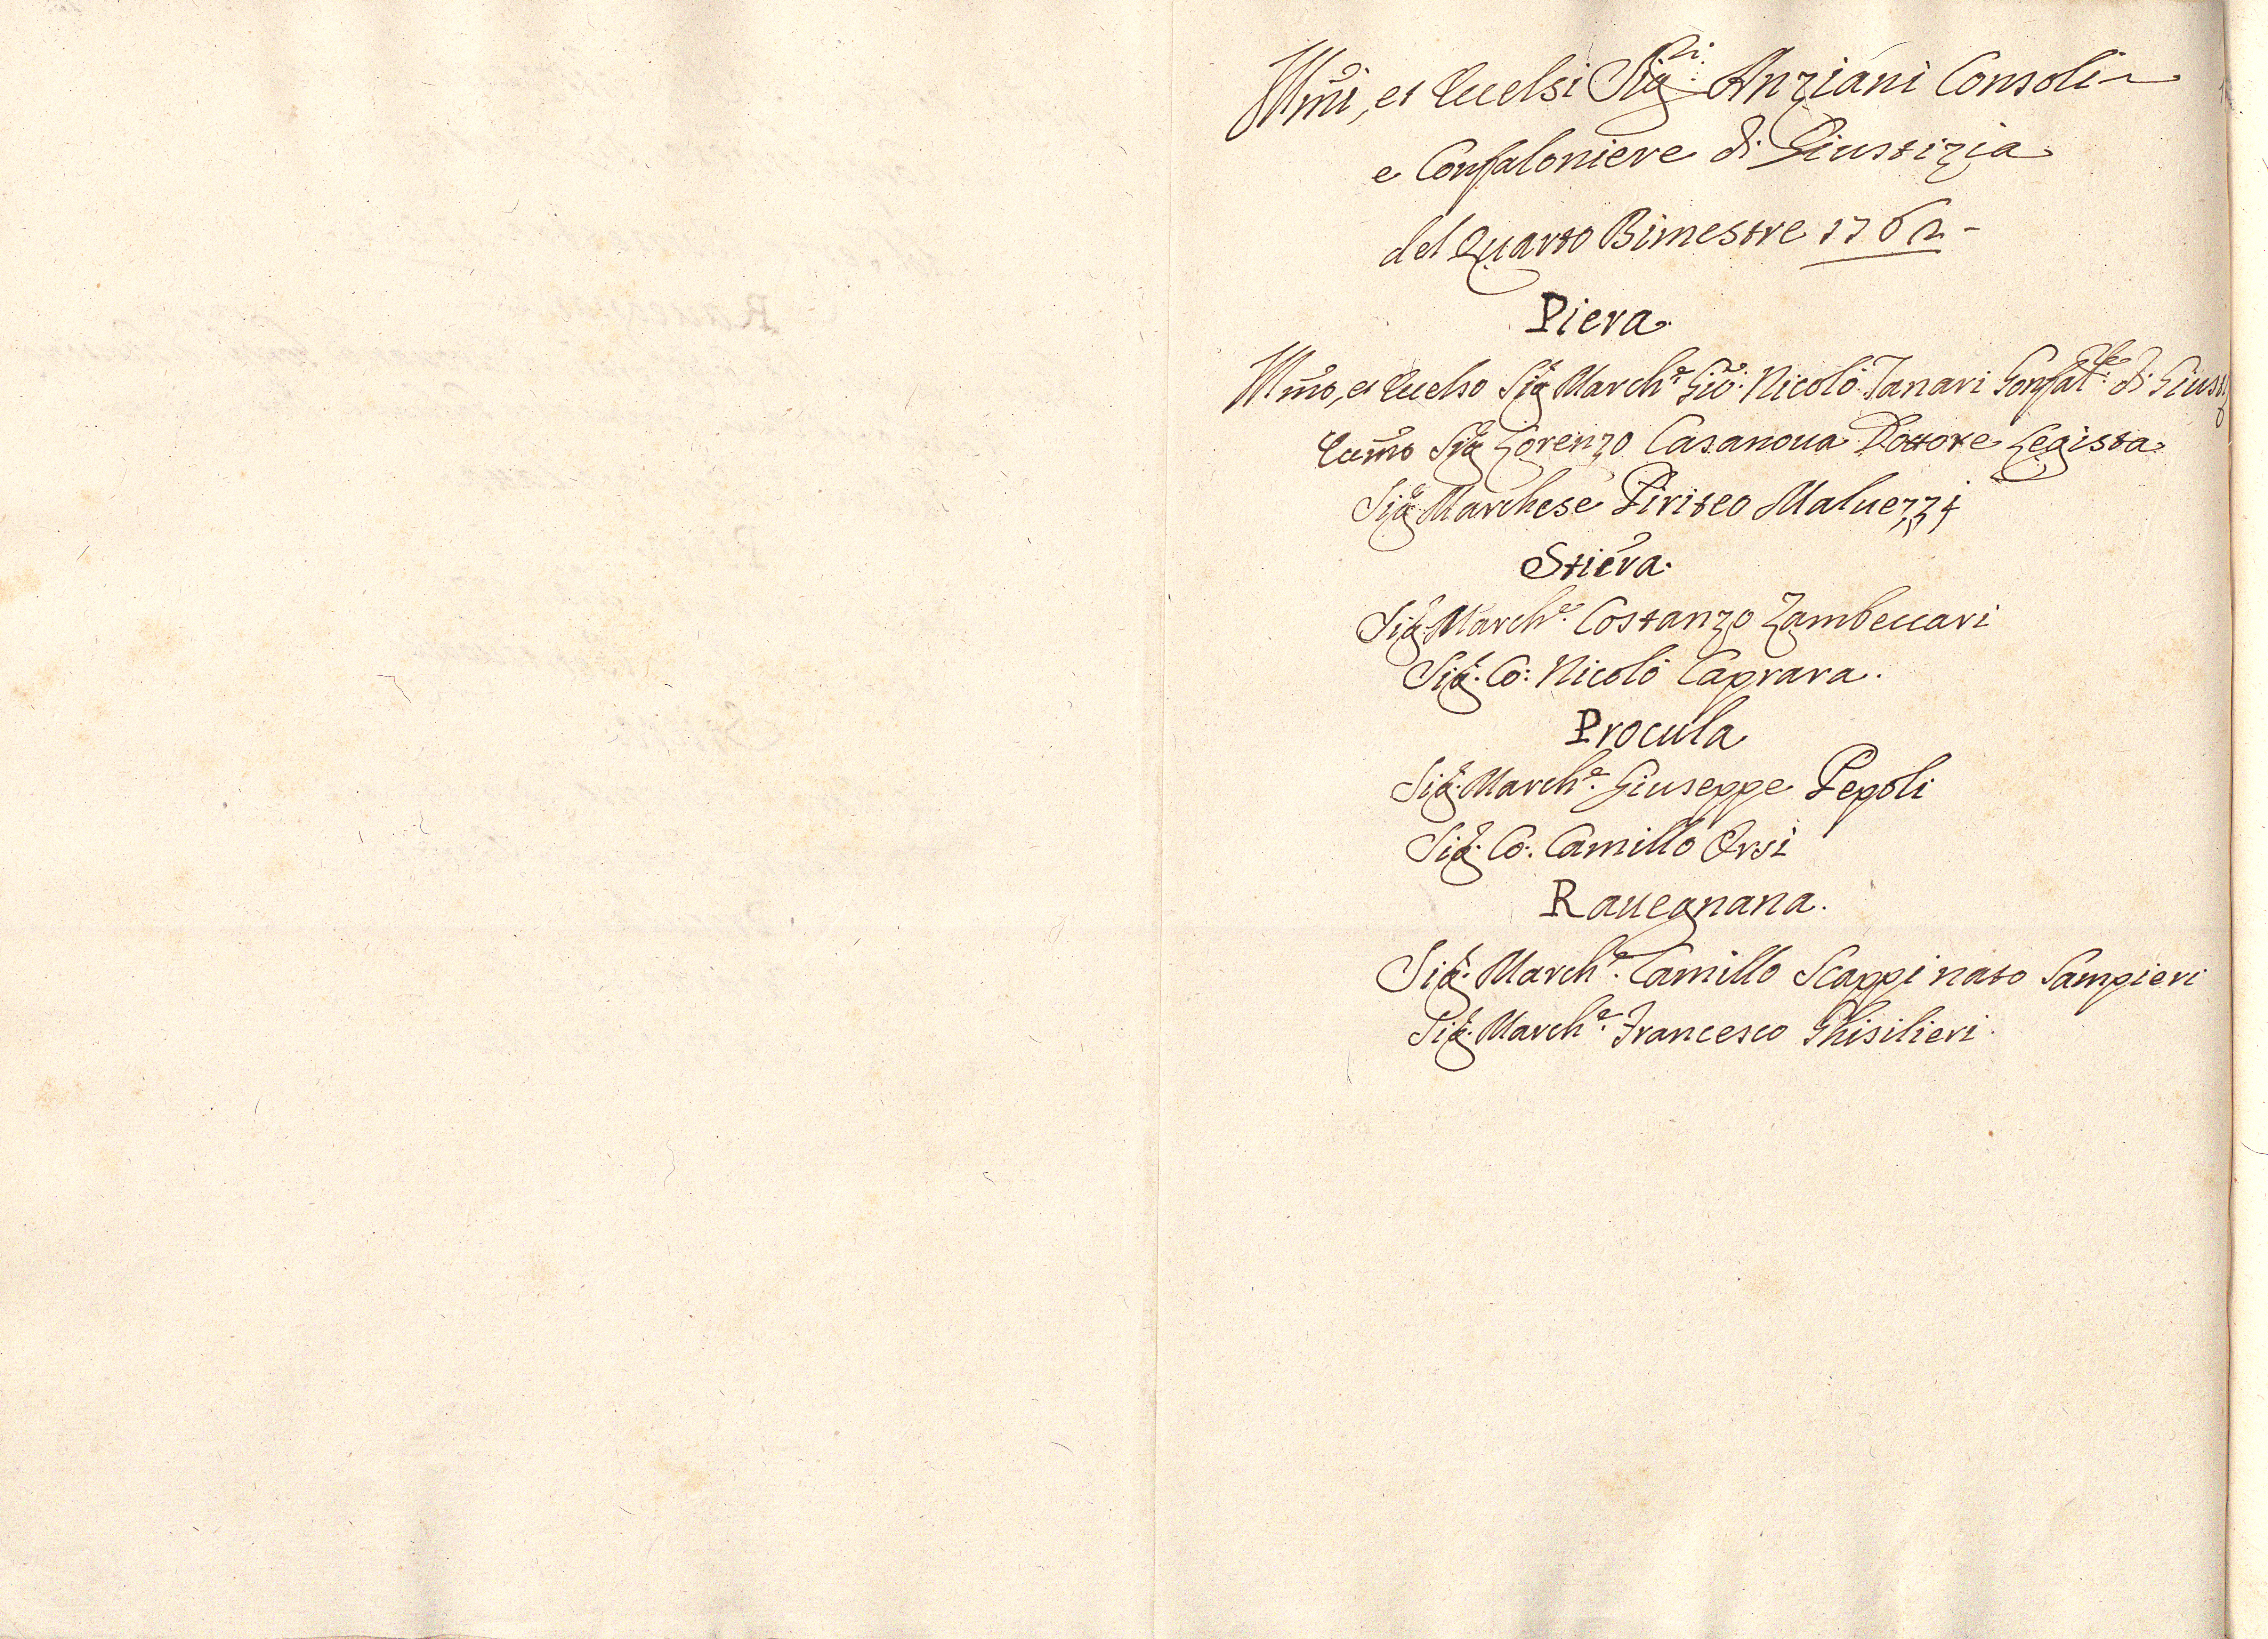 Illmi, et Eccelsi Sigri Anziani Consoli
e Confaloniere di Giustizia
del Quarto Bimestre 1762
Piera
Illmo, et Eccelso Sigr Marche Gio: Nicolò Tanari Gonfalre di Giustiz
Eccmo Sigr Lorenzo Casanoua Dottore Legista
Sigr Marchese Piriteo Maluezzi
Stiera
Sigr Marche Costanzo Zambeccari
Sigr Co: Nicolò Caprara.
Procula
Sigr Marche Giuseppe Pepoli
Sigr Co: Camillo Orsi
Rauegnana.
Sigr Marche Camillo Scappi nato Sampieri
Sigr Marche Francesco Ghisilieri.